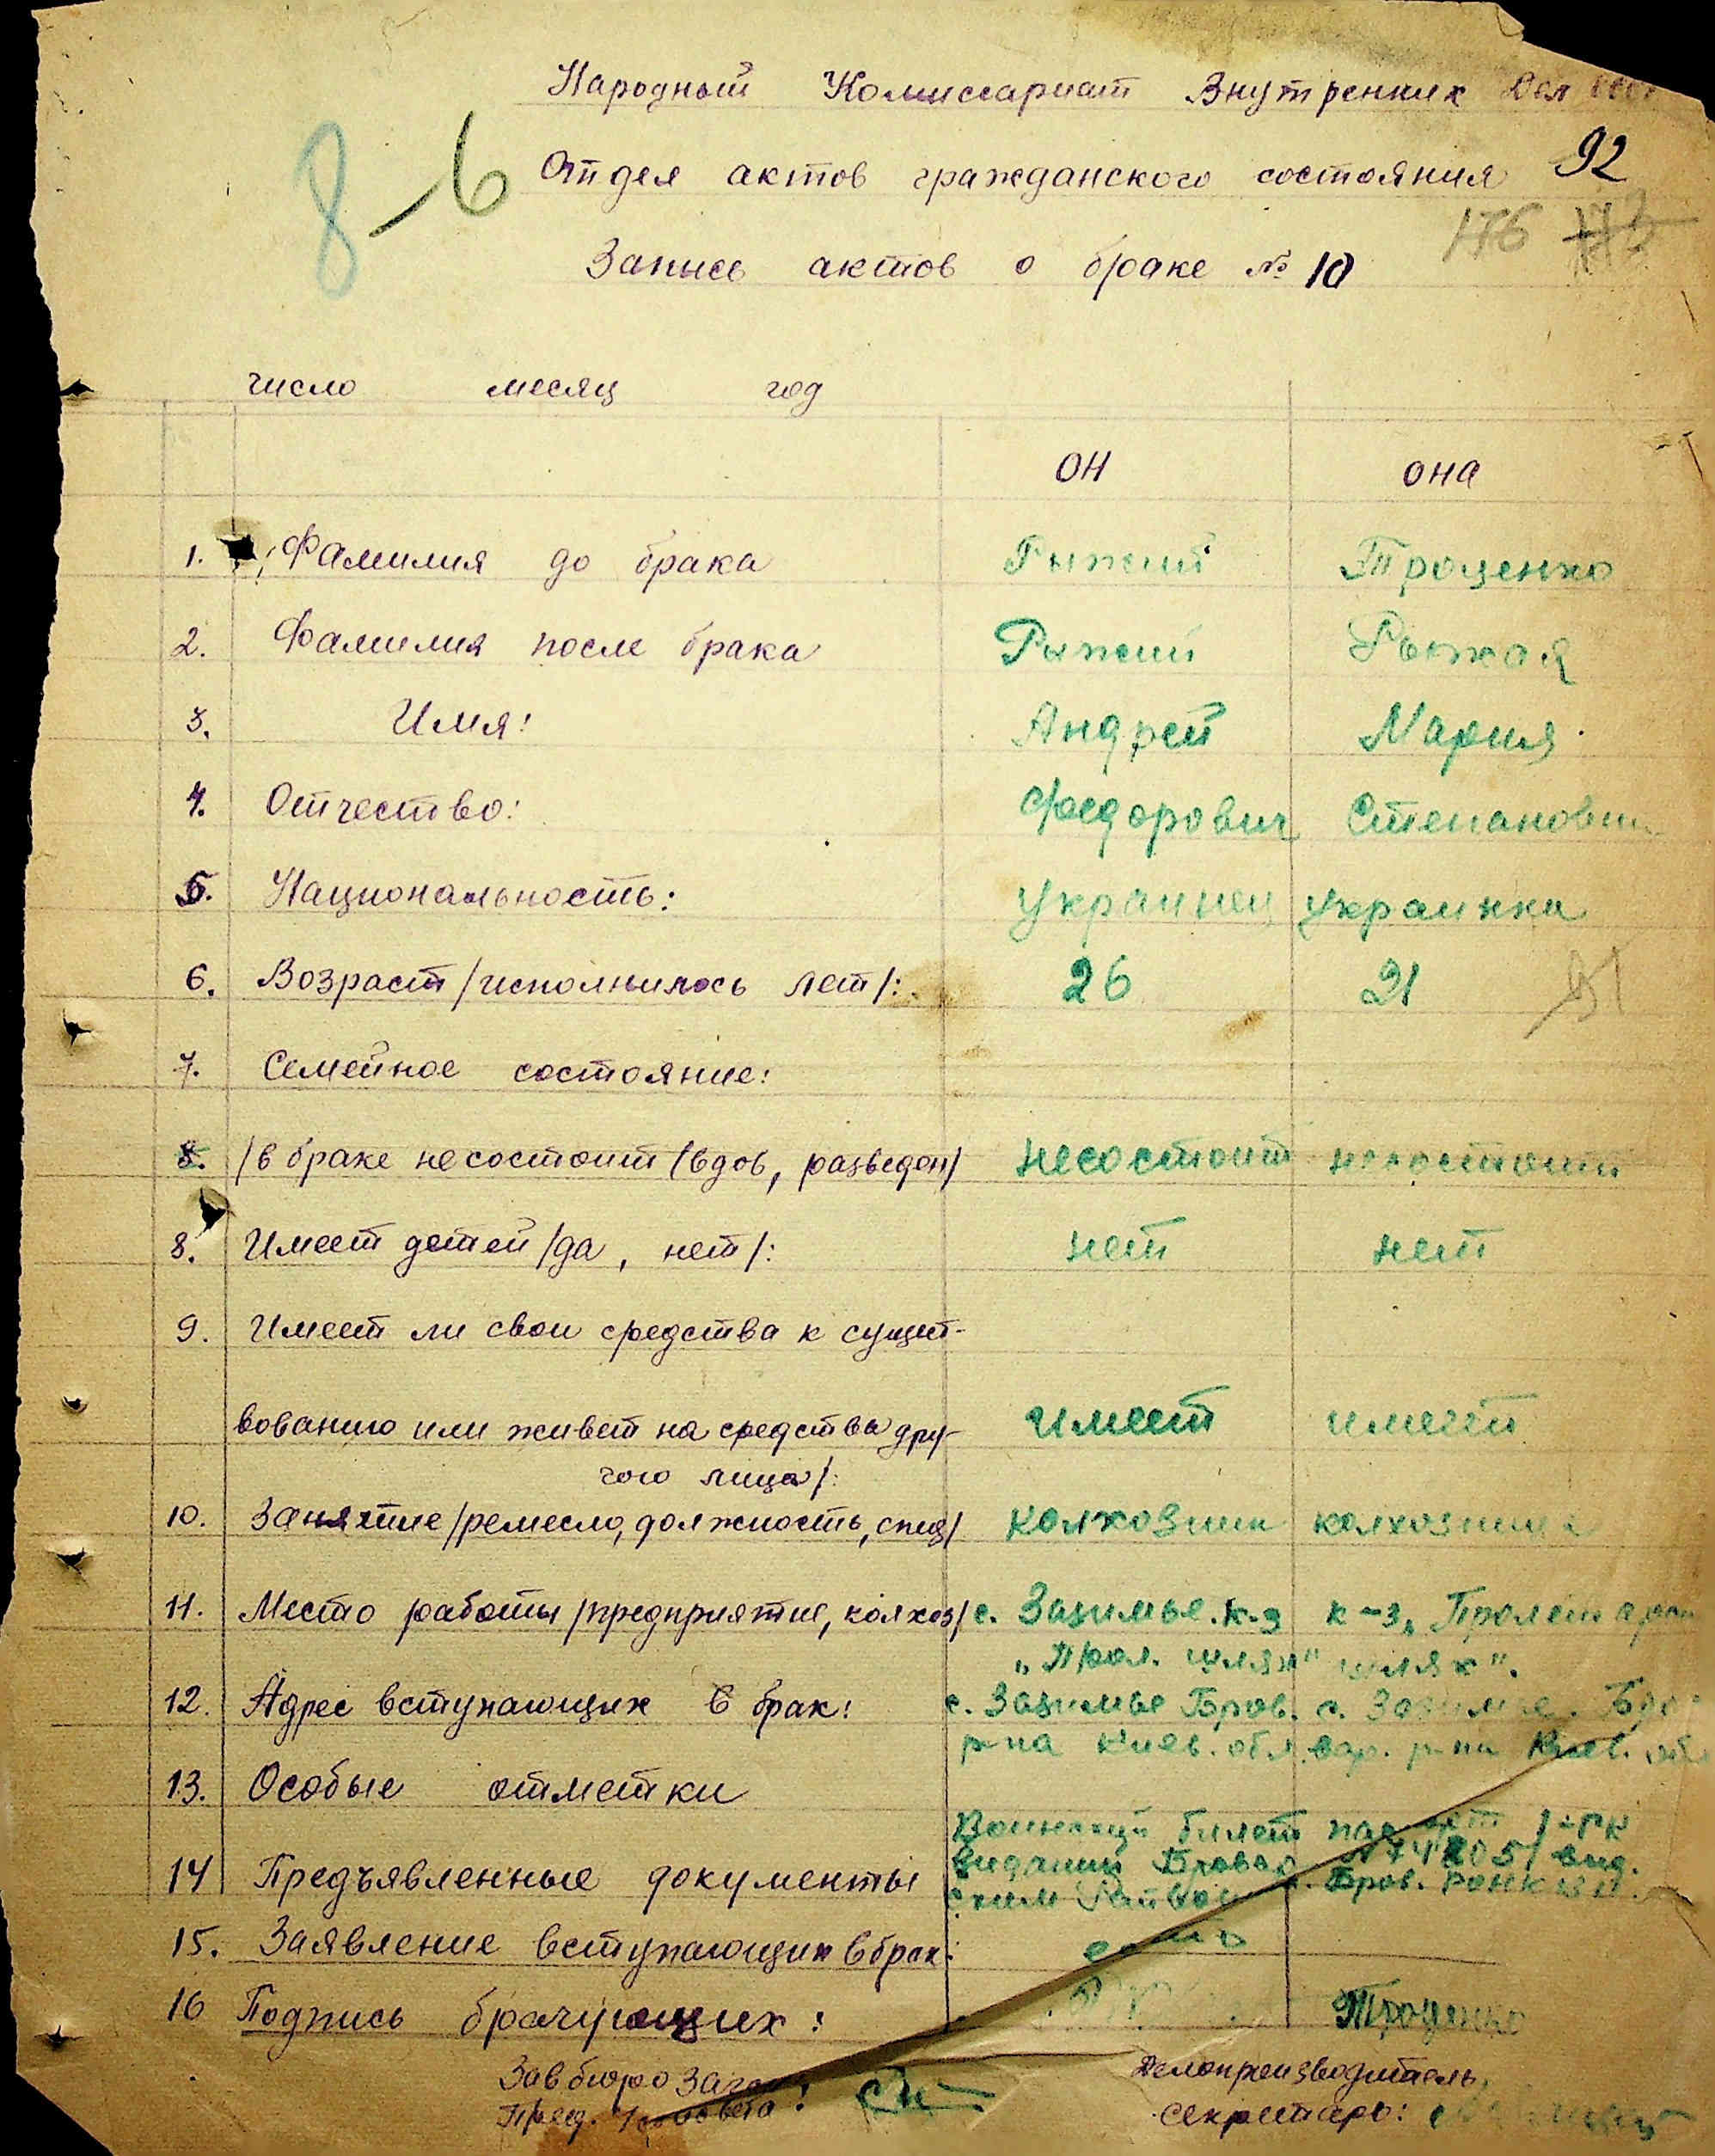 Народный Комиссариат Внутренних Дел
8-6
Отдел актов гражданского состояния 92
176
Запись актов о браке № 10
число месяц год
он она
1. Фамилия до брака Рыжий Троценко
2. Фамилия после брака Рыжий Рыжая
3. Имя: Андрей Мария
4. Отчество: Федорович Степановна
5. Национальность: украинец украинка
6. Возраст /исполнилось лет/: 26 21
7. Семейное состояние:
8. /в браке несостоит /вдов, разведен/ несостоит несостоит
8. Имеет детей /да, нет/: нет нет
9. Имеет ли свои средства к сущест-
вованию или живет на средства дру- имеет имеет
гого лица/:
10. Занятие /ремесло, должность, спец/ колхозник колхозница
11. Место работы /предприятие, колхоз/ с. Зазимье. к-з к-з „Пролетарский
„Прол. шлях" шлях".
12. Адрес вступающих в брак: с. Зазимье Бров. с. Зазимье. Бро
р-на Киев. обл. вар. р-на Киев. обл
13. Особые отметки
Воинский билет
14 Предъявленные документы виданий Бровар вид.
ским Бров.
15. Заявление вступающих в брак: есть
16 Подпись брачующихся: Троценко
Зав бюро Загса: Делопроизводитель,
Пред. секретарь: